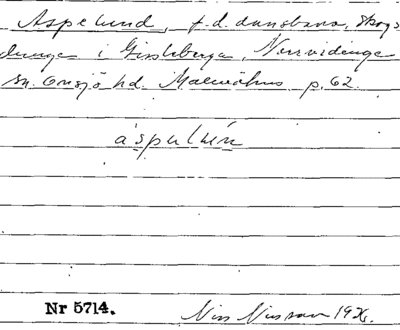 Aspelund, f.d. dansbana, skogs
dunge i Gissleberga, Norrvidinge
sn. Onsjö hd. Malmöhus p. 62.
áspalún
Nr 5714.
Nils Nilsson 192